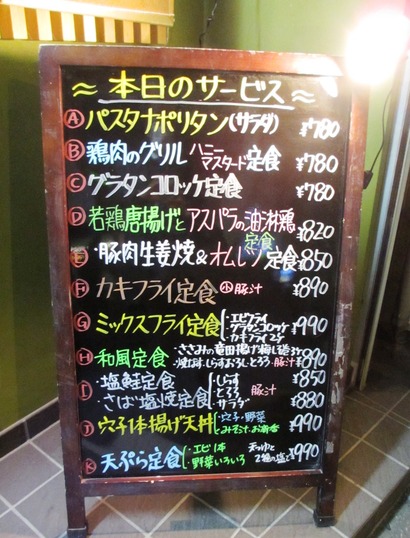 ～本日のサービス～
Ⓐパスタナポリタン(サラダ) ¥780
Ⓑ鶏肉のグリル ハニーマスタード定食 ¥780
Ⓒグラタンコロッケ定食 ¥780
Ⓓ若鶏唐揚げとアスパラの油淋鶏定食 ¥820
Ⓔ・豚肉生姜焼&オムレツ定食 ¥850
カキフライ定食 小豚汁 ¥890
Ⓖミックスフライ定食 ・エビフライ ¥990
・グラタンコロッケ
・カキフライ 2ケ
Ⓗ和風定食 ・ささみの竜田揚げ ¥890
しらすおろしとろろ 豚汁
Ⓘ・塩鮭定食 しらす 豚汁 ¥850
・さば塩焼定食 とろろ サラダ ¥880
Ⓙ穴子1本揚げ天丼 ・穴子・野菜 ¥990
とみそ汁・お新香
Ⓚ天ぷら定食 ・エビ1本 天つゆと ¥990
・野菜いろいろ 2種の塩